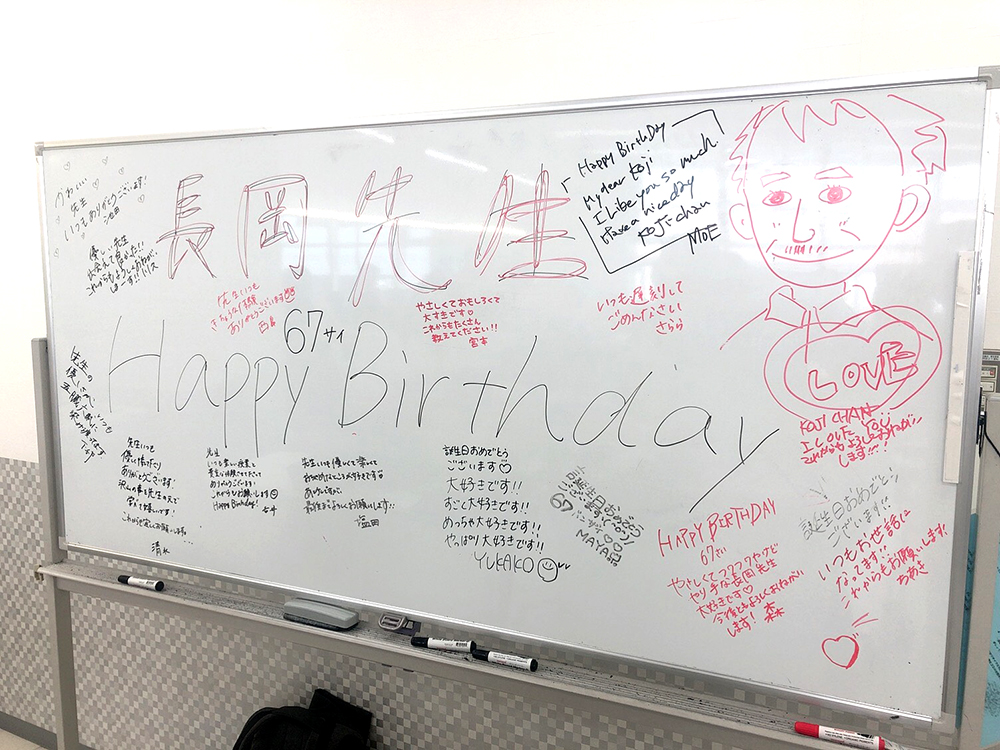 長岡先生
Happy Birthday
67サイ
かわいい
先生
いつもありがとうございます!
池田
優しい先生
出会えて良かった!!
これからもよろしくおねがい
しまーす!!
先生いつも
ありがとうございます
やさしくておもしろくて
大すきです♡
これからもたくさん
教えてください!!
宮本
Happy BirthDay
My dear Koji
I like you so much
Have a nice day
Koji-chan
MOE
いつも遅刻して
ごめんなさい
さらら
LOVE
KOJI CHAN
I LOVE YOU
これからもよろしくおねがい
します!!!
先生いつも
ありがとうございます!
これからも宜しくお願いします。
清水
先生
いつも楽しい授業と
ありがとうございます!
これからもお願いします
Happy Birthday!
先生いつも優しくて
最後までよろしくお願いします!!
誕生日おめでとう
ございます♡
大好きです!!
すごく大好きです!!
めっちゃ大好きです!!
やっぱり大好きです!!
YUKAKO
お誕生日おめでとう
ございます
67
MAYAKA
HAPPY BIRTHDAY
67さい
やさしくてフワフワやけど
やり手な長岡先生
大好きです♡
今後ともよろしくおねがい
します!
森
誕生日おめでとう
ございます!!
いつもお世話に
なってます!!
これからもお願いします!
ちあき